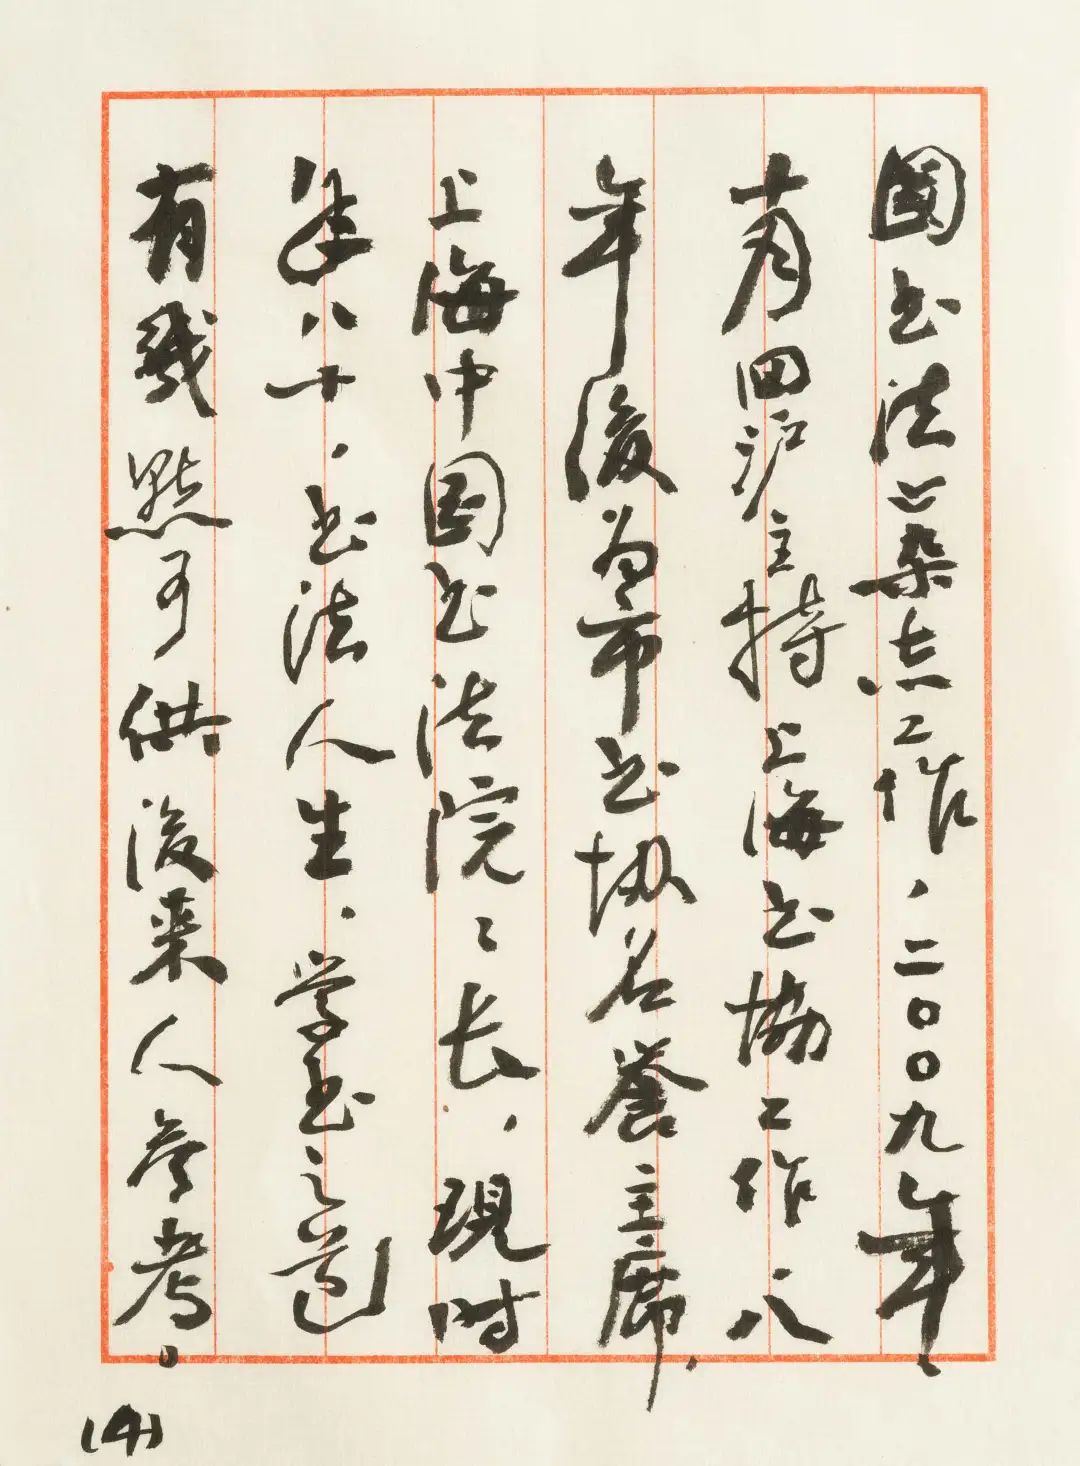 國书法》杂志工作，二〇〇九年
十月回沪主持上海书協工作八
年後为市书协名誉主席，
上海中国书法院〻长，現时
年八十，书法人生，学书之道
有幾點可供後来人参考。
(4)